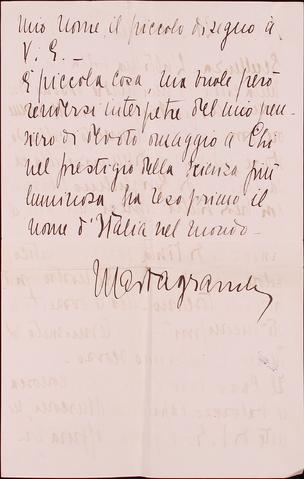 mio nome, il piccolo disegno a
V. E. -
È piccola cosa, ma vuole però
rendersi interpetre del mio pen-
siero di devoto omaggio a Chi
nel prestigio della scienza più
luminosa, ha reso primo il
nome d'Italia nel mondo -